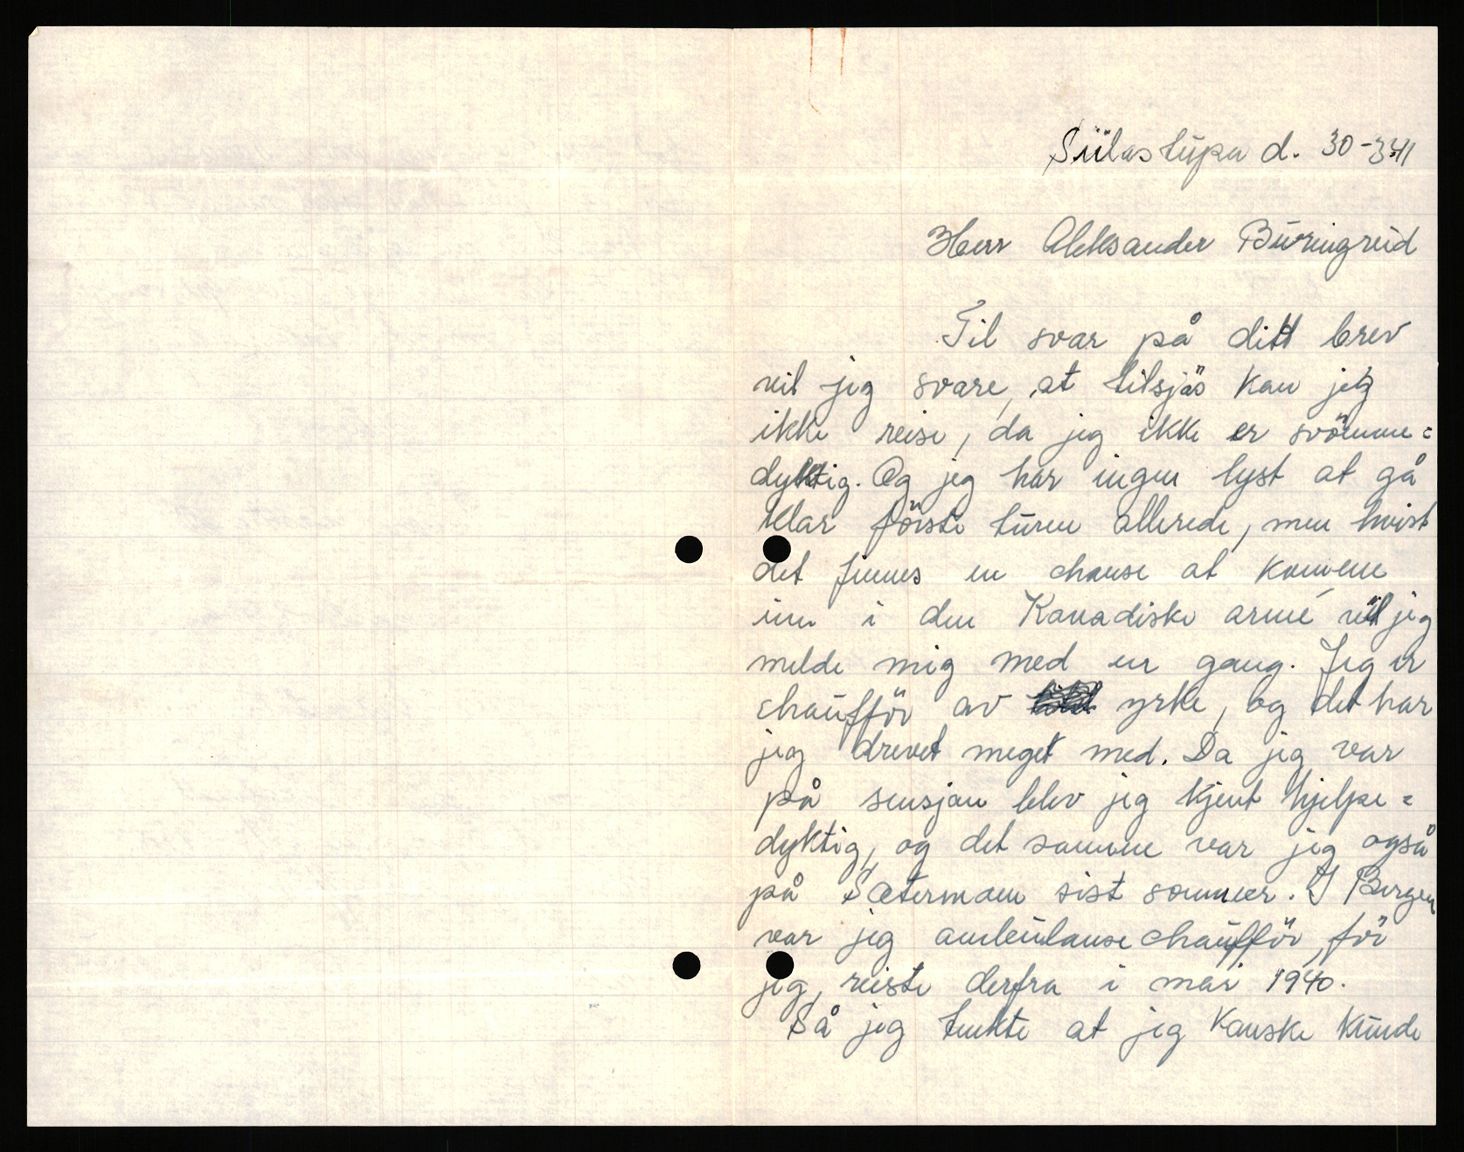 Siilastupa d. 30-3-41
Herr Aleksander Buringrud
Til svar på ditt brev
vil jeg svare, at tilsjös kan jeg
ikke reise, da jeg ikke er svömme=
dyktig. Og jeg har ingen lyst at gå
klar förste turen allerede, men hvist
det finnes en chanse at komme
inn i den Kanadiske armé vil jeg
melde mig med en gang. Jeg er
chaufför av yrke, og det har
jeg drevet meget med. Da jeg var
på sensjon blev jeg kjent hjelpe=
dyktig, og det samme var jeg også
på Sætermoen sist sommer. I Bergen
var jeg ambulanse chaufför, för
jeg reiste derfra i mai 1940.
Så jeg tenkte at jeg kanske kunde